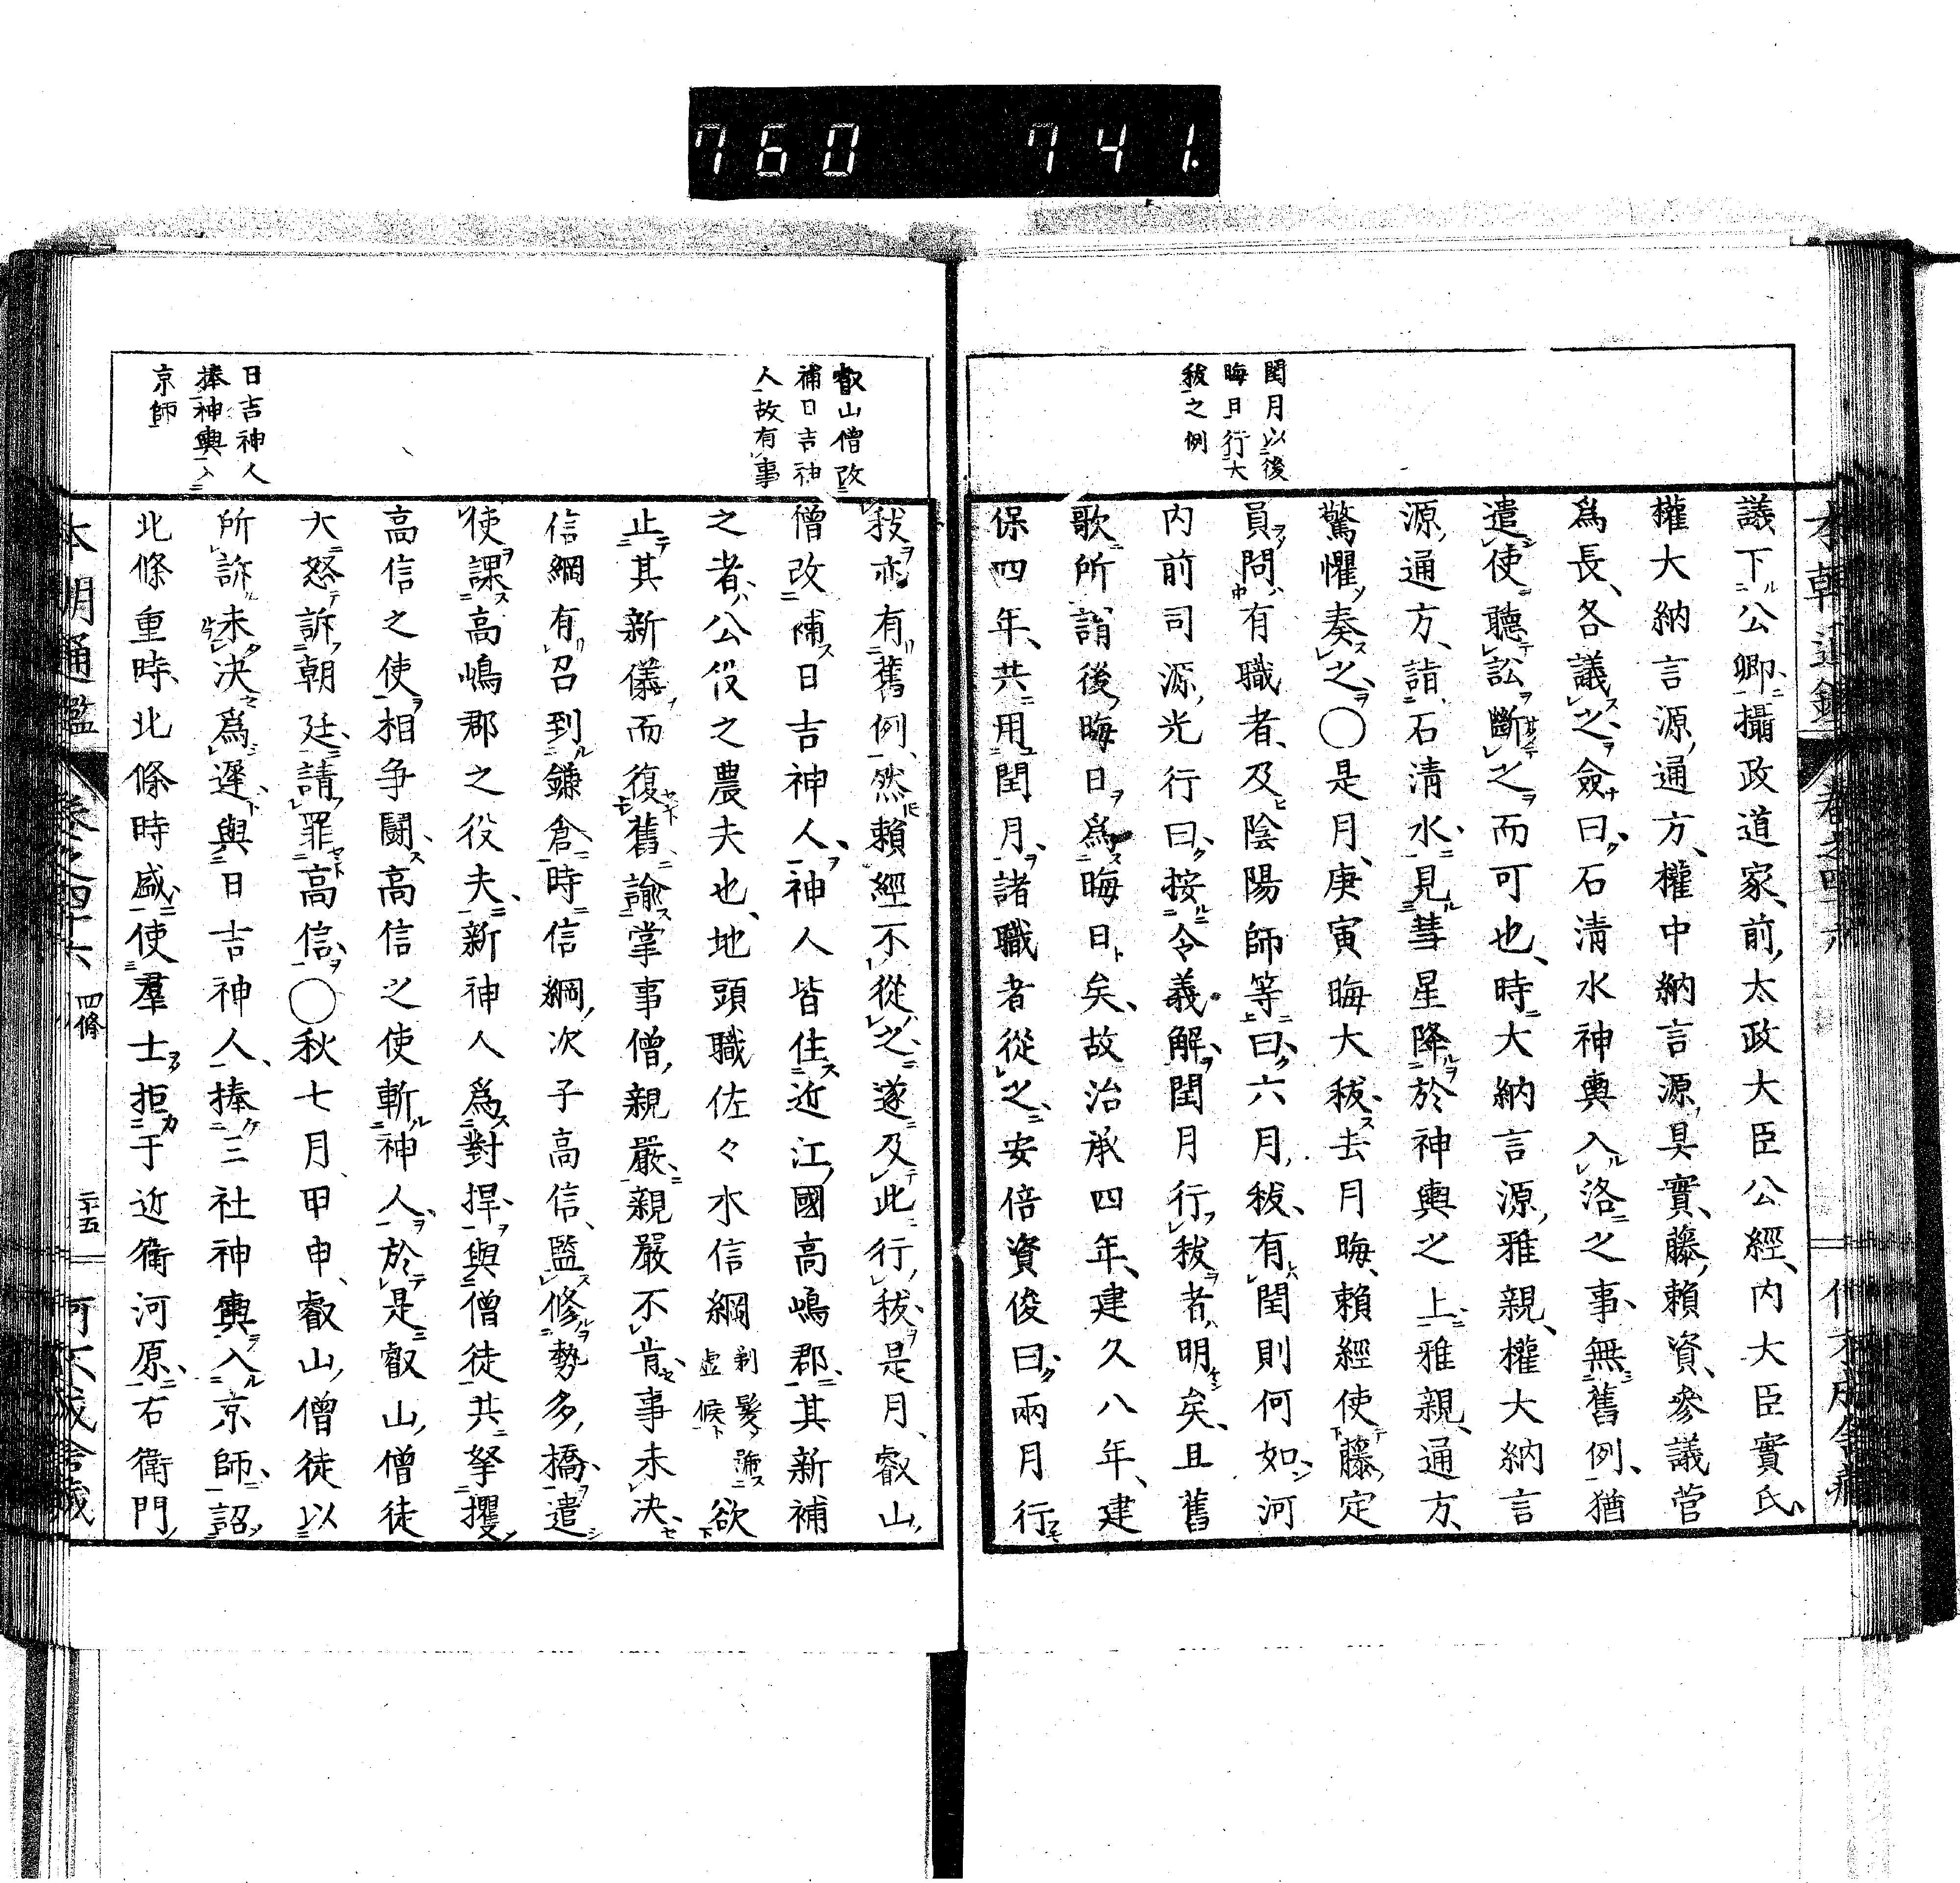 760 741.
閏月以後
晦日行大
秡之例
議下公卿、攝政道家、前太政大臣公經、内大臣實氏、
權大納言源通方、權中納言源具實、藤賴資、參議菅
爲長、各議之、僉曰、石清水神輿入洛之事、無舊例、猶
遣使聽訟斷之而可也、時大納言源雅親、權大納言
源通方、詣石清水、見彗星降於神輿之上、雅親、通方、
驚懼奏之、○是月、庚寅晦大秡、去月晦、賴經使藤定
員問有職者、及陰陽師等曰、六月秡、有閏則何如、河
内前司源光行曰、按令義解、閏月行秡者、明矣、且舊
歌所謂後晦日爲晦日矣、故治承四年、建久八年、建
保四年、共用閏月、諸職者從之、安倍資俊曰、兩月行
叡山僧改
補日吉神
人故有事
日吉神人
捧神輿入
京師
秡亦有舊例、然賴經不從之、遂及此行秡、是月、叡山
僧改補日吉神人、神人皆住近江國高嶋郡、其新補
之者、公役之農夫也、地頭職佐々木信綱剃髮號虚候欲
止其新儀而復舊、諭掌事僧親嚴、親嚴不肯、事未決、
信綱有召到鎌倉、時信綱次子高信、監修勢多橋、遣
使課高嶋郡之役夫、新神人爲對捍、與僧徒共拏攫、
高信之使相争鬪、高信之使斬神人、於是叡山僧徒
大怒訴朝廷、請罪高信、○秋七月、甲申、叡山僧徒以
所訴未決爲遲、與日吉神人、捧三社神輿入京師、詔
北條重時、北條時盛、使羣士拒于近衛河原、右衛門
本朝通鑑 卷之四十六 四條 二十五